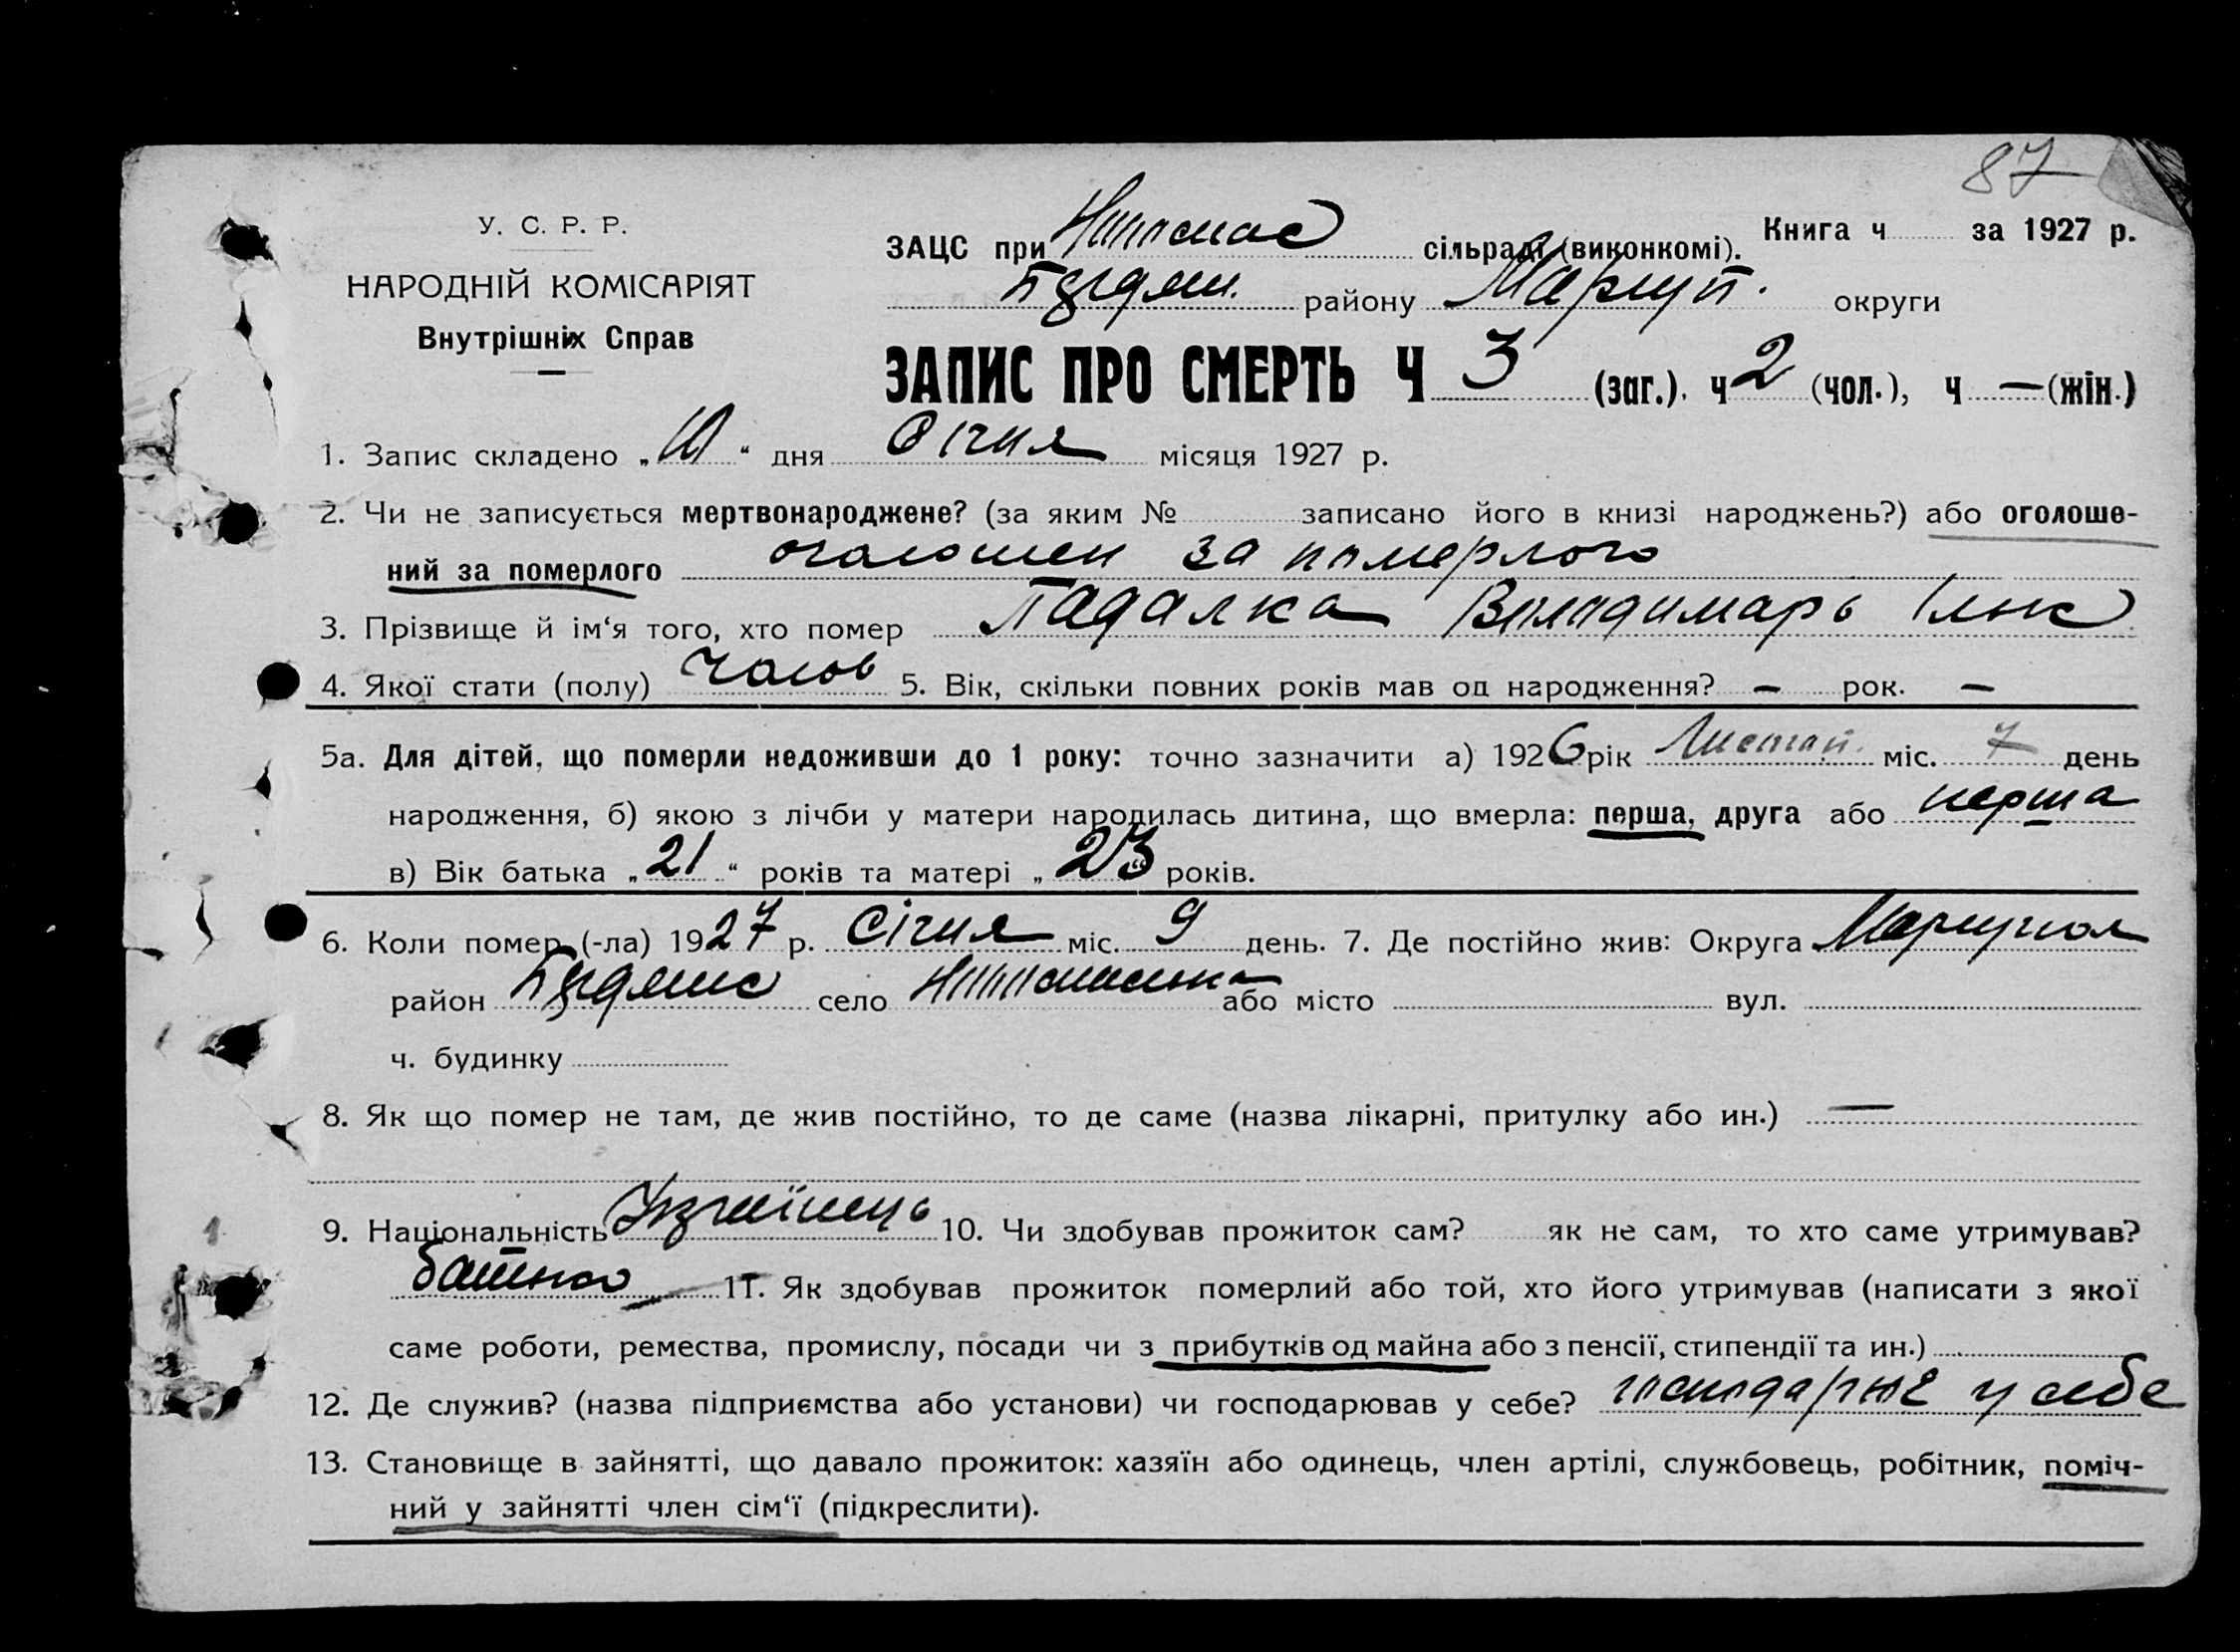 87
У. С. Р. Р.
НАРОДНІЙ КОМІСАРІЯТ
Внутрішніх Справ
ЗАЦС при сільраді (виконкомі). Книга ч за 1927 р.
району Маріуп. округи
ЗАПИС ПРО СМЕРТЬ Ч 3 (заг.). ч 2 (чол.), ч — (жін.)
1. Запис складено „10“ дня Січня місяця 1927 р.
2. Чи не записується мертвонароджене? (за яким № записано його в книзі народжень?) або оголоше-
ний за померлого оголошен за померлого
3. Прізвище й ім‘я того, хто помер Гадалка Володимарь
4. Якої стати (полу) 5. Вік, скільки повних років мав од народження? — рок. —
5а. Для дітей, що померли недоживши до 1 року: точно зазначити а) 1926 рік міс. 7 день
народження, б) якою з лічби у матери народилась дитина, що вмерла: перша, друга або перша
в) Вік батька „21“ років та матері „23“ років.
6. Коли помер (-ла) 1927 р. Січня міс. 9 день. 7. Де постійно жив: Округа Маріупол
район село або місто вул.
ч. будинку
8. Як що помер не там, де жив постійно, то де саме (назва лікарні, притулку або ин.) —
9. Національність Українець 10. Чи здобував прожиток сам? як не сам, то хто саме утримував?
батько 11. Як здобував прожиток померлий або той, хто його утримував (написати з якої
саме роботи, ремества, промислу, посади чи з прибутків од майна або з пенсії, стипендії та ин.)
12. Де служив? (назва підприємства або установи) чи господарював у себе? у себе
13. Становище в зайнятті, що давало прожиток: хазяїн або одинець, член артілі, службовець, робітник, поміч-
ний у зайнятті член сім‘ї (підкреслити).